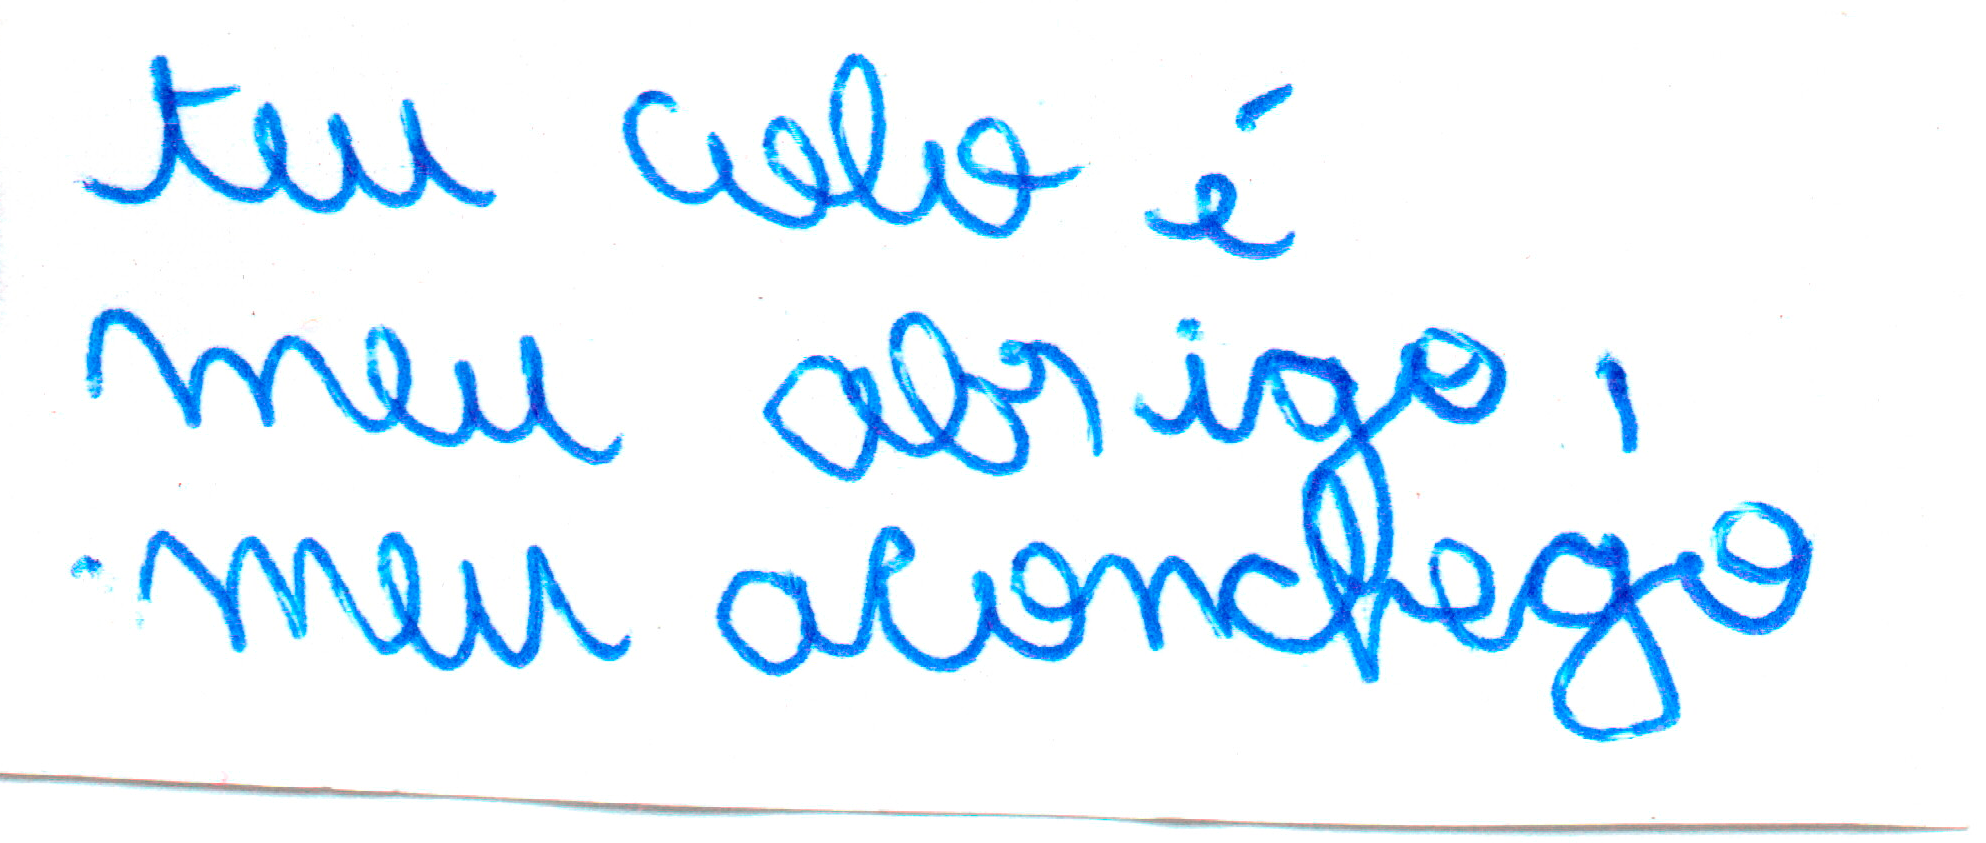 teu colo é
meu abrigo,
meu aconchego